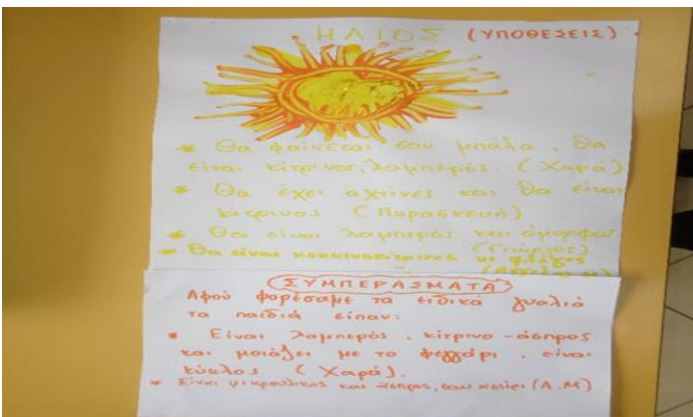 ΗΛΙΟΣ (ΥΠΟΘΕΣΕΙΣ)
* Θα φαίνεται σαν μπάλα, θα
είναι κίτρινος, λαμπερός. (Χαρά)
* Θα έχει αχτίνες και θα είναι
κίτρινος (Παρασκευή)
* Θα είναι λαμπερός και όμορφος
(Γιώργος)
* Θα είναι κοκκινοκίτρινος
ΣΥΜΠΕΡΑΣΜΑΤΑ
Αφού φορέσαμε τα ειδικά γυαλιά
τα παιδιά είπαν:
* Είναι λαμπερός, κίτρινο-άσπρος
και μοιάζει με το φεγγάρι, είναι
κύκλος (Χαρά).
* Είναι μικρούλικος και άσπρος, σαν αστέρι (Α.Μ)